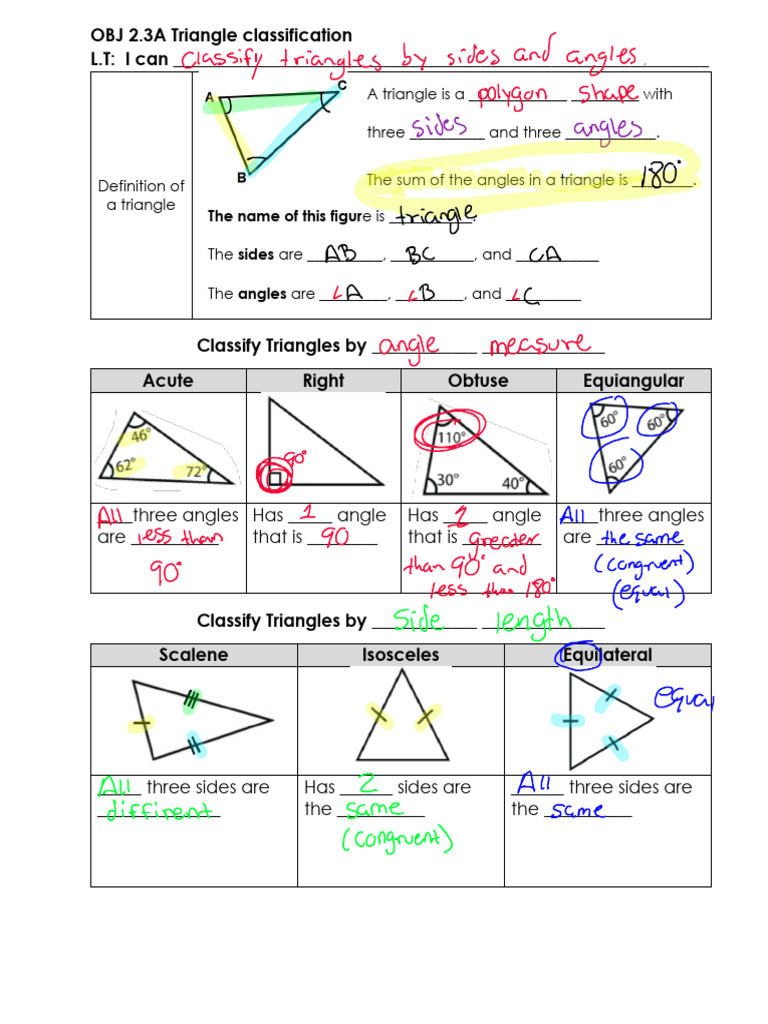 OBJ 2.3A Triangle classification
L.T: I can classify triangles by sides and angles.
Definition of
a triangle
A
C
B
A triangle is a polygon shape with
three sides and three angles.
The sum of the angles in a triangle is 180°.
The name of this figure is triangle.
The sides are AB, BC, and CA
The angles are ∠A, ∠B, and ∠C
Classify Triangles by angle measure
Acute Right Obtuse Equiangular
46°
62° 72°
90°
110°
30° 40°
60° 60°
60°
All three angles
are less than
90°
Has 1 angle
that is 90
Has 1 angle
that is greater
than 90° and
less than 180°
All three angles
are the same
(congruent)
(equal)
Classify Triangles by Side length
Scalene Isosceles Equilateral
equal
All three sides are
diffirent
Has 2 sides are
the same
(congruent)
All three sides are
the same